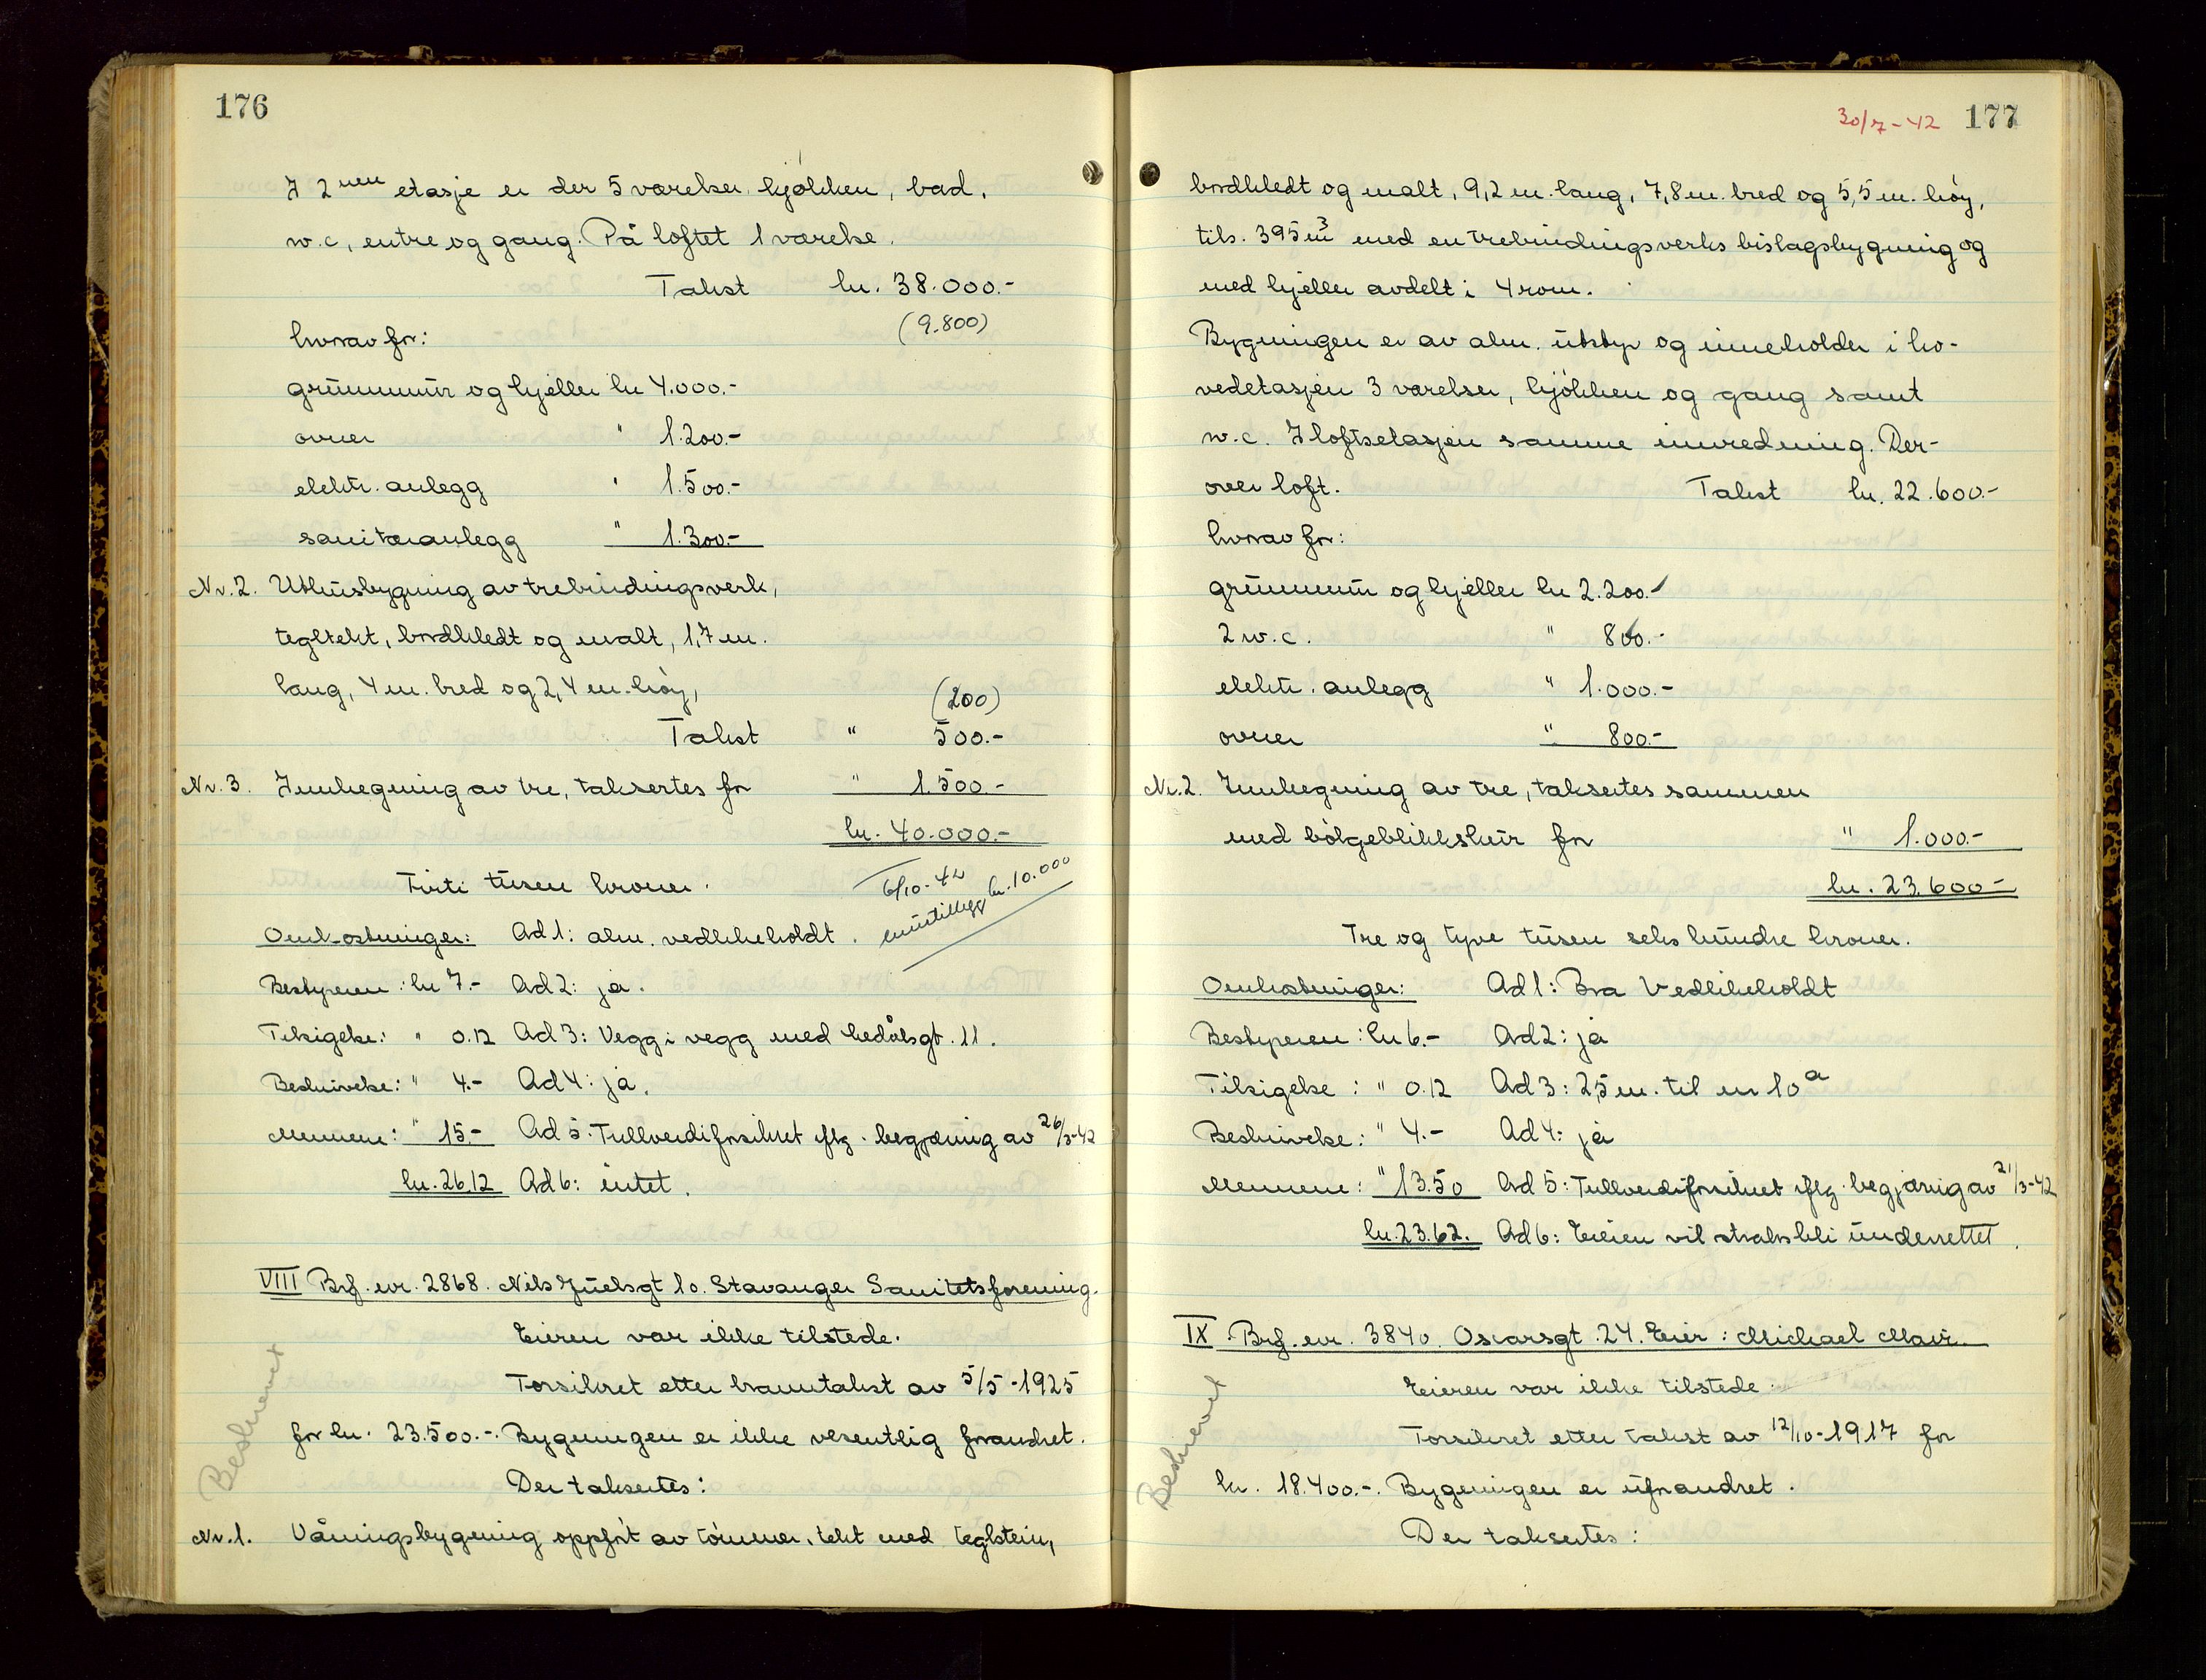 176
I 2nen etasje er der 5 værelser, kjøkken, bad,
w.c, entre og gang. På loftet 1 værelse.
Takst kr. 38.000.-
(9.800)
hvorav for:
grunnmur og kjeller kr 4.000.-
ovner " 1.200.-
elektr. anlegg " 1.500.-
sanitæranlegg " 1.300.-
Nr. 2. Uthusbygning av trebindingsverk,
tegltekt, bordkledt og malt, 1,7 m.
lang, 4 m. bred og 2,4 m. høy,
(200)
Takst " 500.-
Nr. 3. Innhegning av tre, taksertes for " 1.500.-
kr. 40.000.-
Førti tusen kroner.
6/10-42 kr. 10.000
Omkostninger: Ad 1: alm. vedlikeholdt.
Bestyreren: kr 7.- Ad 2: ja.
Tilsigelse: " 0.12 Ad 3: Vegg i vegg med Ledålsgt. 11.
Beskrivelse: " 4.- Ad 4: ja.
Mennene: " 15.- Ad 5: Fullverdiforsikret iflg. begjæring av 26/3-42
kr. 26.12 Ad 6: intet.
VIII Brf. nr. 2868. Nils Juelsgt 10. Stavanger Sanitetsforening.
Eieren var ikke tilstede.
Forsikret etter branntakst av 5/5-1925
for kr. 23.500.-. Bygningen er ikke vesentlig forandret.
Der taksertes:
Beskrevet
Nr. 1. Våningsbygning oppført av tømmer, tekt med teglstein,
30/7-42 177
bordkledt og malt, 9,2 m. lang, 7,8 m. bred og 5,5 m. høy,
tils. 395 m3 med en trebindingsverks bislagsbygning og
med kjeller avdelt i 4 rom.
Bygningen er av alm. utstyr og inneholder i ho-
vedetasjen 3 værelser, kjøkken og gang samt
w.c. I loftsetasjen samme innredning. Der-
over loft. Takst kr. 22.600.-
hvorav for:
grunnmur og kjeller kr 2.200.-
2 w.c. " 800.-
elektr. anlegg " 1.000.-
ovner " 800.-
Nr. 2. Innhegning av tre, taksertes sammen
med bølgeblikkskur for " 1.000.-
kr. 23.600.-
Tre og tyve tusen seks hundre kroner.
Omkostninger: Ad 1: Bra Vedlikeholdt
Bestyreren: kr 6.- Ad 2: ja
Tilsigelse: " 0.12 Ad 3: 2,5 m. til nr 10a
Beskrivelse: " 4.- Ad 4: ja
Mennene: " 13.50 Ad 5: Fullverdiforsikret iflg. begjæring av 21/3-42
kr. 23.62. Ad 6: Eieren vil straks bli underrettet.
IX Brf. nr. 3840. Oscarsgt. 24. Eier: Michael
Eieren var ikke tilstede.
Forsikret etter takst av 12/10-1917 for
kr. 18.400.-. Bygningen er uforandret.
Beskrevet
Der taksertes: